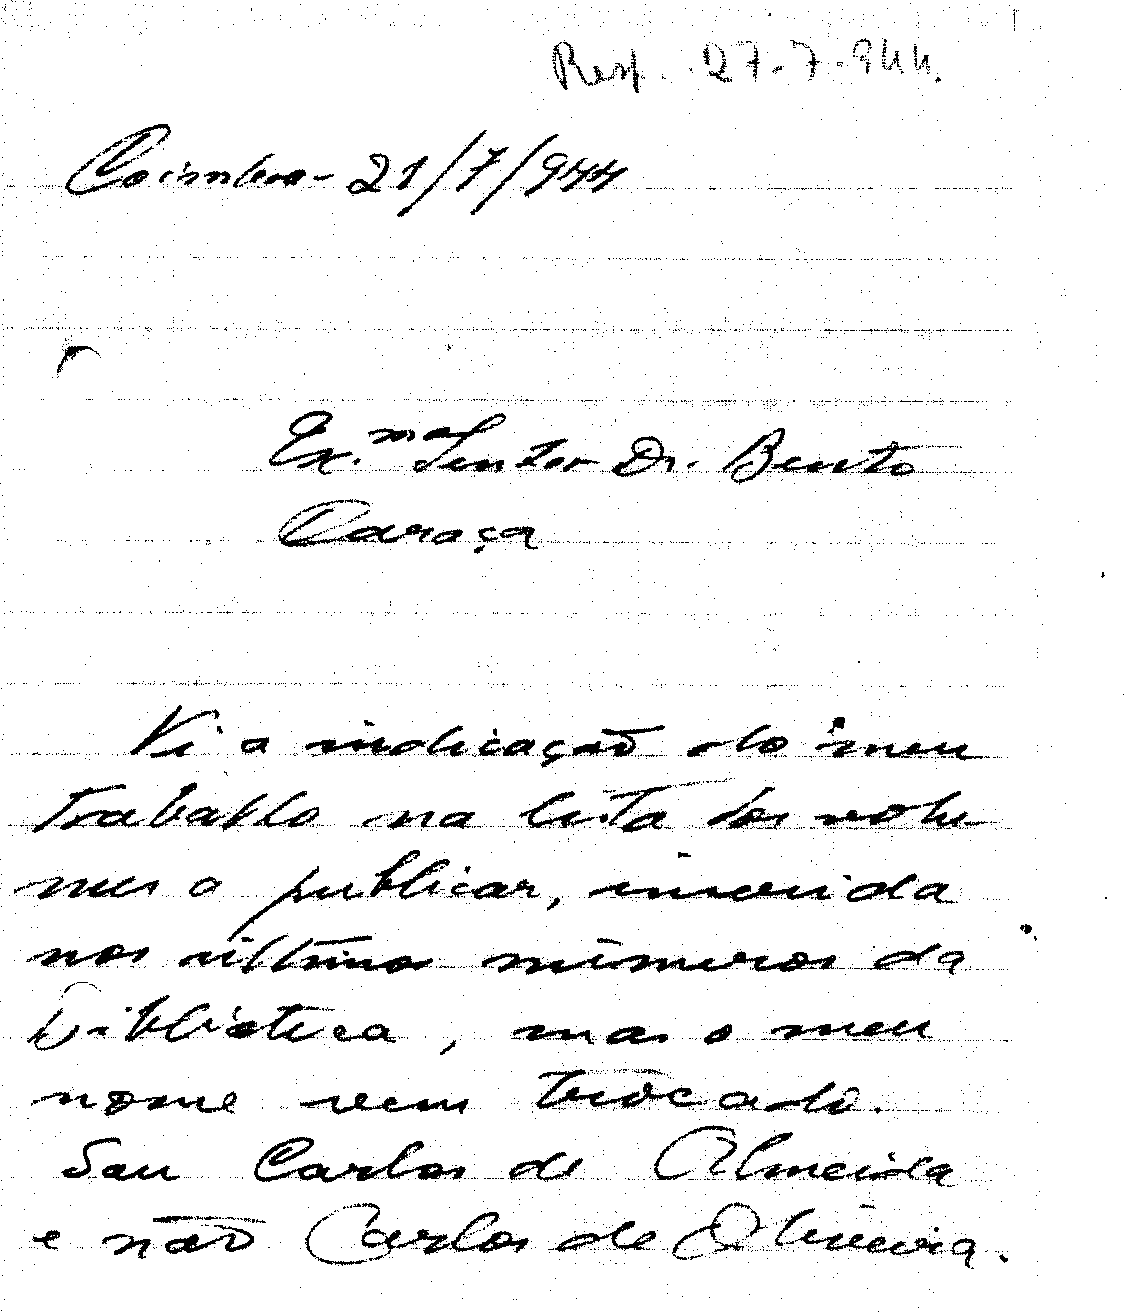 Resp. 27-7-944.
Coimbra - 21/7/944
Ex.mo Senhor Dr. Bento
Caraça
Vi a indicação do meu
trabalho na lista dos volu
mes a publicar, inserida
nos últimos números da
biblioteca, mas o meu
nome vem trocado.
Sou Carlos de Almeida
e não Carlos de Oliveira.